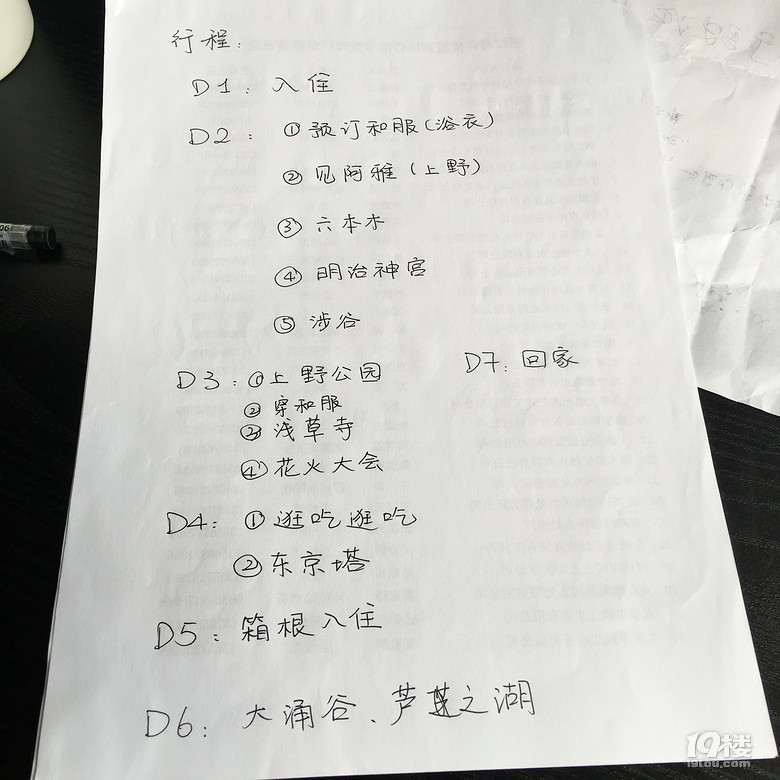 行程:
D1: 入住
D2: ①预订和服(浴衣)
②见阿雅(上野)
③六本木
④明治神宫
⑤涉谷
D3: ①上野公园
②穿和服
③浅草寺
④花火大会
D4: ①逛吃逛吃
②东京塔
D5: 箱根入住
D6: 大涌谷、芦芦之湖
D7: 回家
19楼
19lou.com